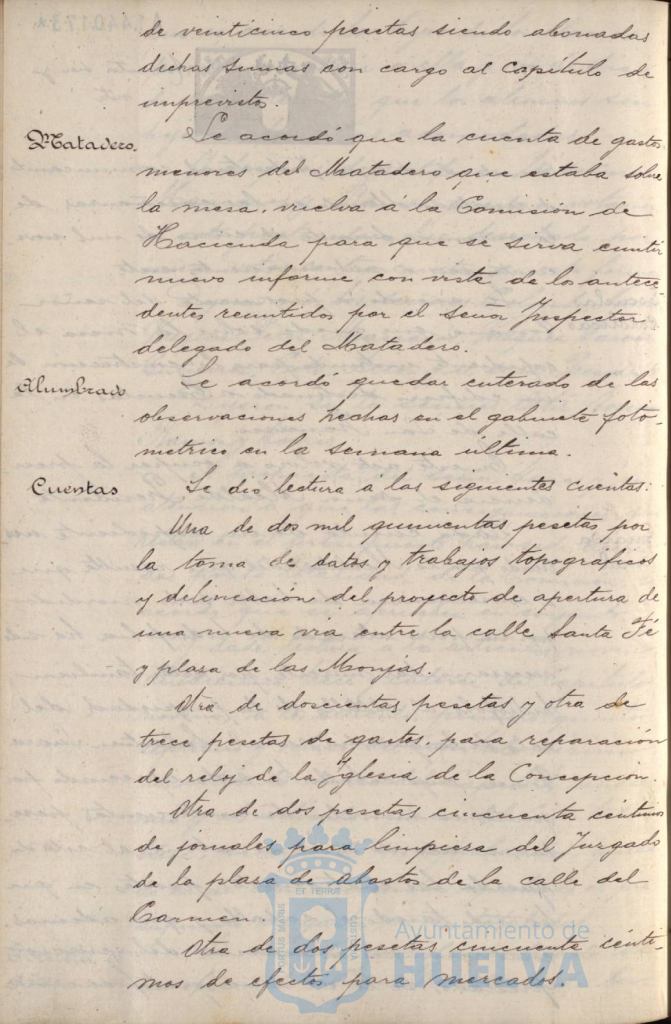 de veinticinco pesetas siendo abonadas
dichas sumas con cargo al Capítulo de
imprevistos.
Matadero.
Se acordó que la cuenta de gastos
menores del Matadero que estaba sobre
la mesa, vuelva á la Comisión de
Hacienda para que se sirva emitir
nuevo informe, con vista de los antece-
dentes remitidos por el señor Inspector
delegado del Matadero.
Alumbrado
Se acordó quedar enterado de las
observaciones hechas en el gabinete foto-
métrico en la semana última.
Cuentas
Se dió lectura á las siguientes cuentas:
Una de dos mil quinientas pesetas por
la toma de datos y trabajos topográficos
y delineación del proyecto de apertura de
una nueva via entre la calle Santa Fé
y plaza de las Monjas.
Otra de doscientas pesetas y otra de
trece pesetas de gastos, para reparación
del reloj de la Iglesia de la Concepción.
Otra de dos pesetas cincuenta céntimos
de jornales para limpieza del Juzgado
de la plaza de abastos de la calle del
Carmen.
Otra de dos pesetas cincuenta cénti-
mos de efectos para mercados.
Ayuntamiento de
HUELVA